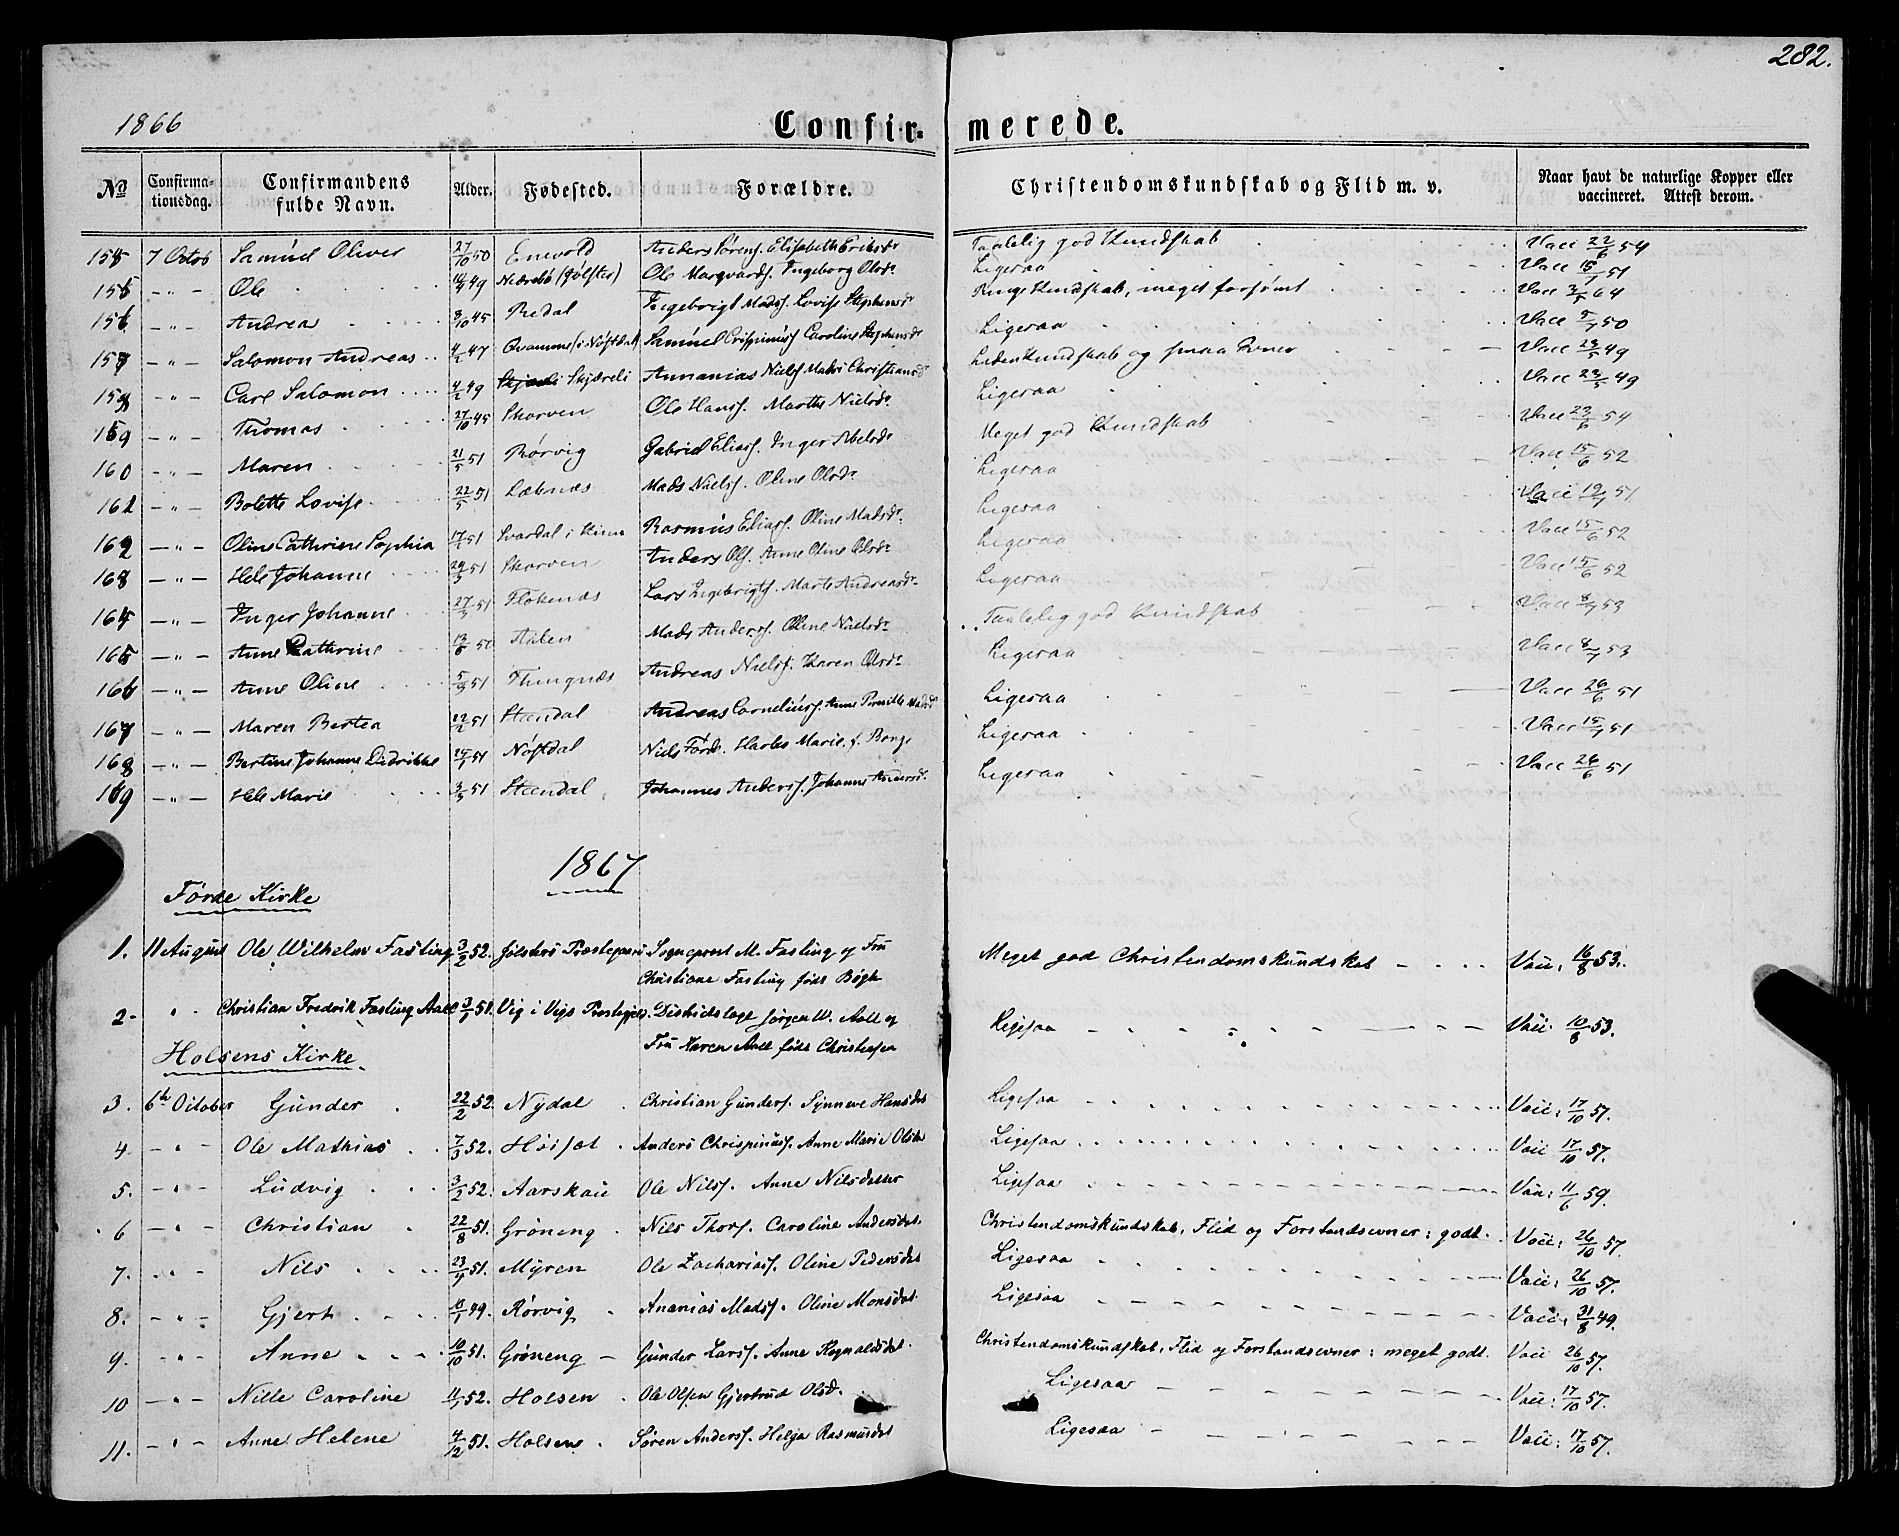 282.
1866 Confir- merede.
No Confirmationsdag. Confirmandens fulde Navn. Alder. Fødested. Forældre. Christendomskundskab og Flid m. v. Naar havt de naturlige Kopper eller vaccineret. Attest derom.
7 Octob Samuel Oliver 27/10 50 Enevold Anders Sørens. Elisabeth Eriksdr Taalelig god Kundskab Vacc 22/6 54
Ole Nedrebø (Jølster) Ole Marqvards. Ingeborg Olsdr Ligesaa Vacc 15/7 51
Andrea 8/10 45 Redal Ingebrigt Mads. Lovise Stephensdr Ringe Kundskab, meget forsømt Vacc 3/5 64
157 Salomon Andreas 4/2 47 Qvamme (i Nøstdal) Samuel Crispinuss Caroline Stephensdr Ligesaa Vacc 5/7 50
Carl Salomon 4/2 49 Skjæreli Annanias Niels. Christiansd Liden Kundskab og smaa Evner Vacc 23/5 49
159 Thomas 27/10 45 Skorven Ole Hans. Marthe Nielsdr Ligesaa Vacc 23/5 49
160 Maren 21/5 51 Rørvig Gabriel Elias. Inger Abelsdr Meget god Kundskab Vacc 23/6 54
161 Bolette Lovise 22/5 51 Læknæs Mads Niels. Oline Olsdr Ligesaa Vacc 15/6 52
162 Oline Cathrine Sophia 17/1 51 Svardal i Kinn Rasmus Elias. Oline Madsdr Ligesaa Vacc 19/7 51
163 Hele Johanne 51 Skorven Anders Ols. Anne Oline Olsdr Ligesaa Vacc 15/6 52
164 Inger Johanne 27/3 51 Flokenæs Lars Ingebrigts. Marte Andreasdr Ligesaa Vacc 15/6 52
165 Anne Cathrine 13/6 50 Aalen Mads Anders. Oline Nielsdr Taalelig god Kundskab Vacc 8/7 53
166 Anne Oline 5/9 51 Thingnæs Andreas Niels. Karen Olsdr Ligesaa Vacc 8/7 53
167 Maren Bertea 22/2 51 Steendal Andreas Cornelius. Anne Pernille Madsd Ligesaa Vacc 26/6 51
168 Bertine Johanne Didrikke 51 Nøstdal Niels Førde. Marie f. Borge Ligesaa Vacc 15/7 51
169 Hele Marie 51 Steendal Johannes Anders. Johanne Andersd. Ligesaa Vacc 26/6 51
1867
Førde Kirke
1. 11 August Ole Wilhelm Fasting 3/2 52. Jølsters Præstegjeld Sogneprest M. Fasting og Fru Meget god Christendomskundskab Vacc: 16/8 53.
Christiane Fasting født Bøgh
2. Christian Fredrik Fasting Aall 51. Vig i Vigs Prestegjeld. Districtslæge Jørgen W. Aall og Ligesaa Vacc: 10/8 53.
Fru Karen Aall født Christensen
Holsens Kirke
3. 6te October Gunder 22/2 52. Nydal Christian Gunders. Synneve Hansdat Ligesaa Vacc: 17/10 57.
4. Ole Mathias 7/3 52. Høisæt Anders Chrispinuss. Anne Marie Olsdr Ligesaa Vacc 17/10 57.
5. Ludvig 3/2 52. Aarskau Ole Nils. Anne Nilsdatter Ligesaa Vacc: 11/6 59.
6 Christian 22/8 51. Grøneng Nils Thors. Caroline Andersdat. Christendomskundskab, Flid og Forstandsevner: godt. Vacc: 26/10 57.
7. Nils 51. Myren Ole Zacharias. Oline Pedersdat Ligesaa Vacc: 26/10 57.
8. Gjert 49. Rørvig Ananias Mads. Oline Monsdat. Ligesaa Vacc: 31/8 49.
9. Anne 10/10 51. Grøneng Gunder Lars. Anne Regnaldsdat. Christendomskundskab, Flid og Forstandsevner: meget godt. Vacc 26/10 57.
10 Nille Caroline 11/1 52. Holsen Ole Olsen Gjertrud Olsd. Ligesaa Vacc: 17/10 57.
11. Anne Helene 4/12 51. Holsen Søren Anders. Helja Rasmusdat Ligesaa Vacc: 17/10 57.